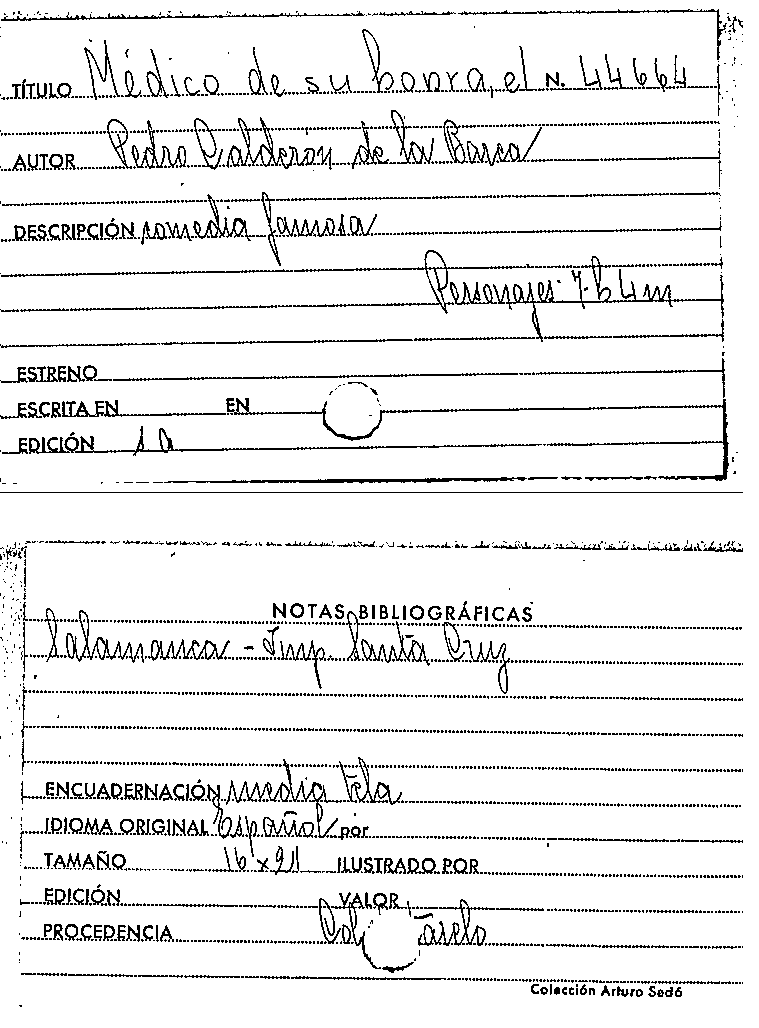 TÍTULO Médico de su honra, el N. 44664
AUTOR Pedro Calderón de la Barca
DESCRIPCIÓN comedia famosa
Personajes: 7h 4m
ESTRENO
ESCRITA EN EN
EDICIÓN s a
NOTAS BIBLIOGRÁFICAS
Salamanca - Imp. Santa Cruz
ENCUADERNACIÓN media tela
IDIOMA ORIGINAL Español por
TAMAÑO 16 x 21 ILUSTRADO POR
EDICIÓN VALOR
PROCEDENCIA
Colección Arturo Sedó